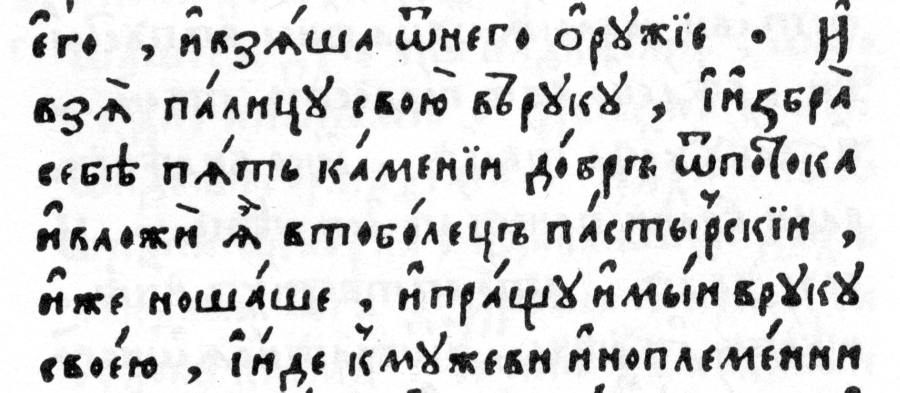 є҆го̀ , и҆взѧ́ша ѿнего ѻ҆рꙋжїе . И҆
взѧ̀ па́лицꙋ свою̀ въ́рꙋкꙋ , і҆и҆збра̀
себѣ пѧ́ть ка́менїи до́брѣ ѿпото́ка
и҆вложѝ ѧ҆̀ втобо́лецъ па́стырскїи ,
и҆́же ноша́ше , и҆пра́щꙋ и҆мы́и врꙋкꙋ
своє́ю , і҆и́де кмꙋжеви и҆ноплеме́нни